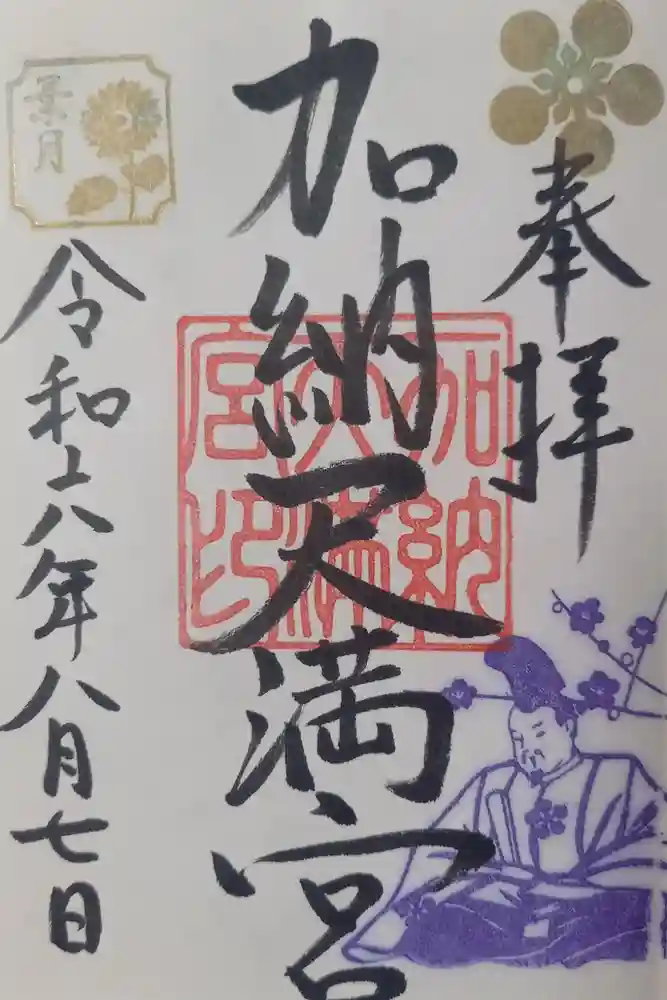 奉拝
加納天満宮
加納
天満
宮印
葉月
令和六年八月七日